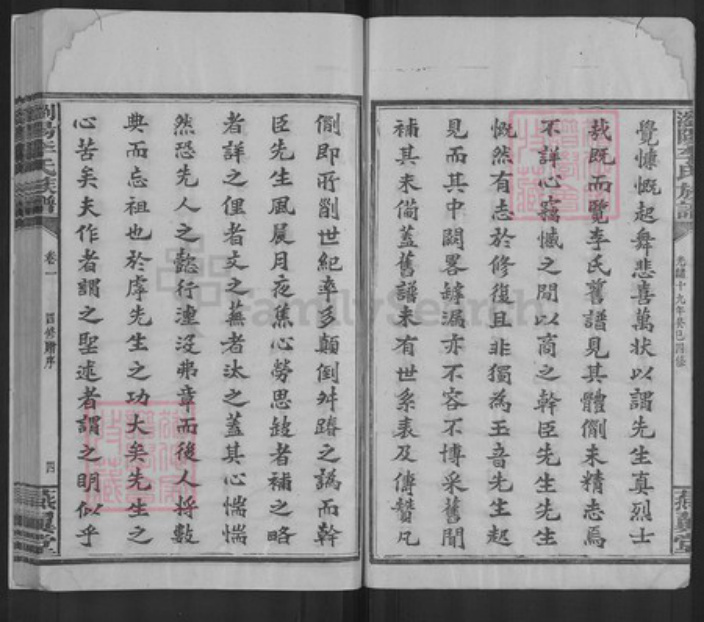 瀏陽李氏族譜
光緒十九年癸巳四修
燕翼堂
覺慷慨起舞悲喜萬狀以謂先生真烈士
哉既而覽李氏舊譜見其體例未精志焉
不詳心竊憾之間以商之幹臣先生先生
慨然有志於修復且非獨為玉音先生起
見而其中闕畧罅漏亦不容不博采舊聞
補其未備蓋舊譜未有世系表及傳贊凡
例即所劄世紀率多顛倒舛踳之譌而幹
臣先生風晨月夜焦心勞思缺者補之略
者詳之俚者文之蕪者汰之蓋其心惴惴
然恐先人之懿行湮沒弗章而後人將數
典而忘祖也於虖先生之功大矣先生之
心苦矣夫作者謂之聖述者謂之明似乎
瀏陽李氏族譜
卷一
四修贈序
四
燕翼堂
FamilySearch